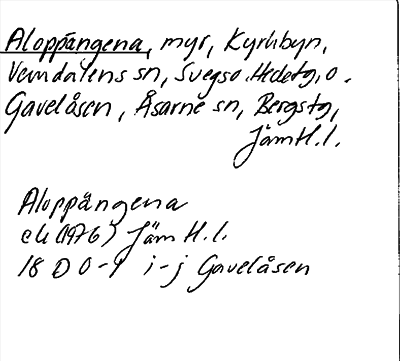 Aloppängena, myr, Kyrkbyn,
Vemdalens sn, Svegs o. Hedetg, o.
Gavelåsen, Åsarne sn, Bergstg,
Jämtl. l.
Aloppängena
ek (1976) Jämtl. l.
18 D 0-1 i-j Gavelåsen